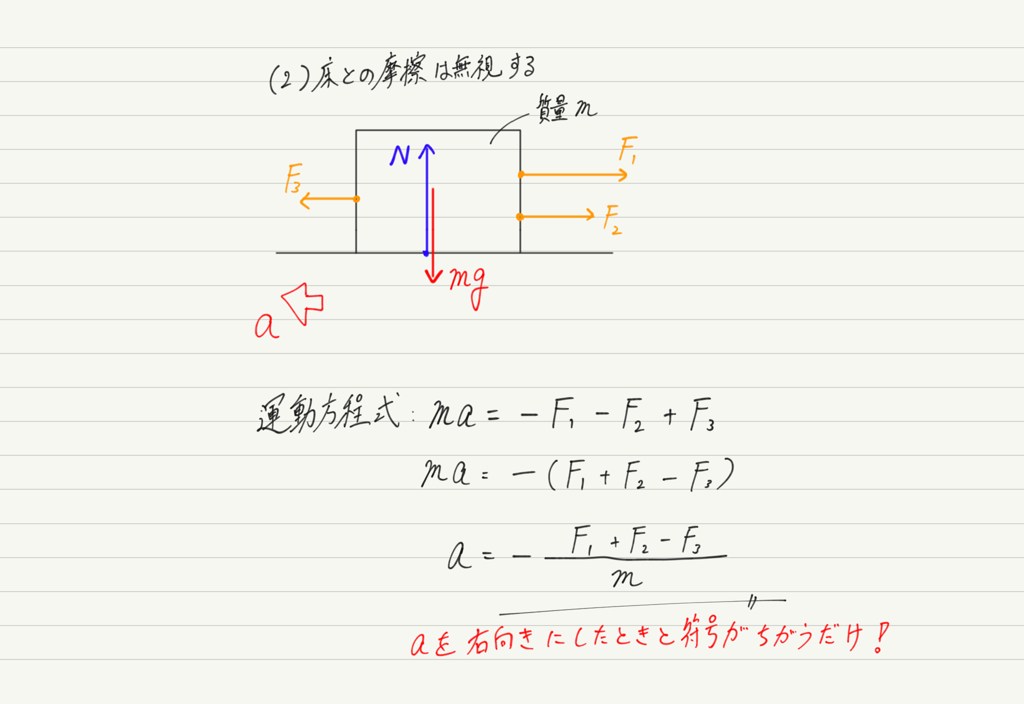 (2) 床との摩擦は無視する
質量m
N
F₁
F₃
F₂
mg
a
運動方程式: ma = - F₁ - F₂ + F₃
ma = - (F₁ + F₂ - F₃)
a = - (F₁ + F₂ - F₃) / m
aを右向きにしたときと符号がちがうだけ!